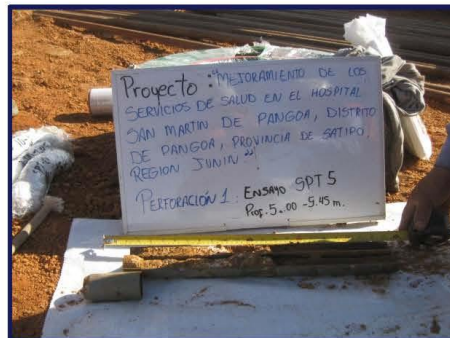 Proyecto : "MEJORAMIENTO DE LOS
SERVICIOS DE SALUD EN EL HOSPITAL
SAN MARTIN DE PANGOA, DISTRITO
DE PANGOA, PROVINCIA DE SATIPO,
REGION JUNIN"
PERFORACIÓN 1 : ENSAYO SPT 5
Prof. 5.00 - 5.45 m.